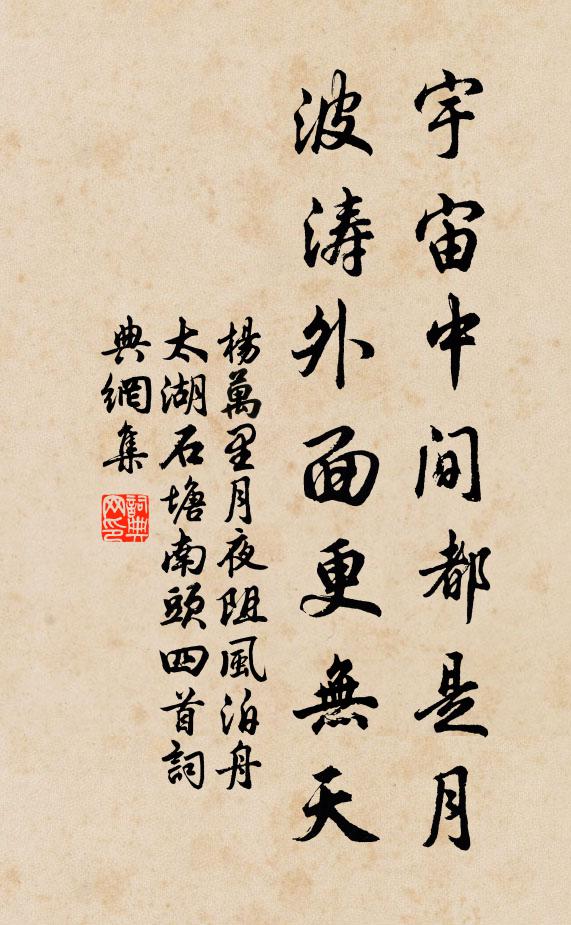 宇宙中間都是月
波涛外面更無天
楊萬里月夜阻風泊舟
太湖石塘南頭四首詞
典網集
詞典网印